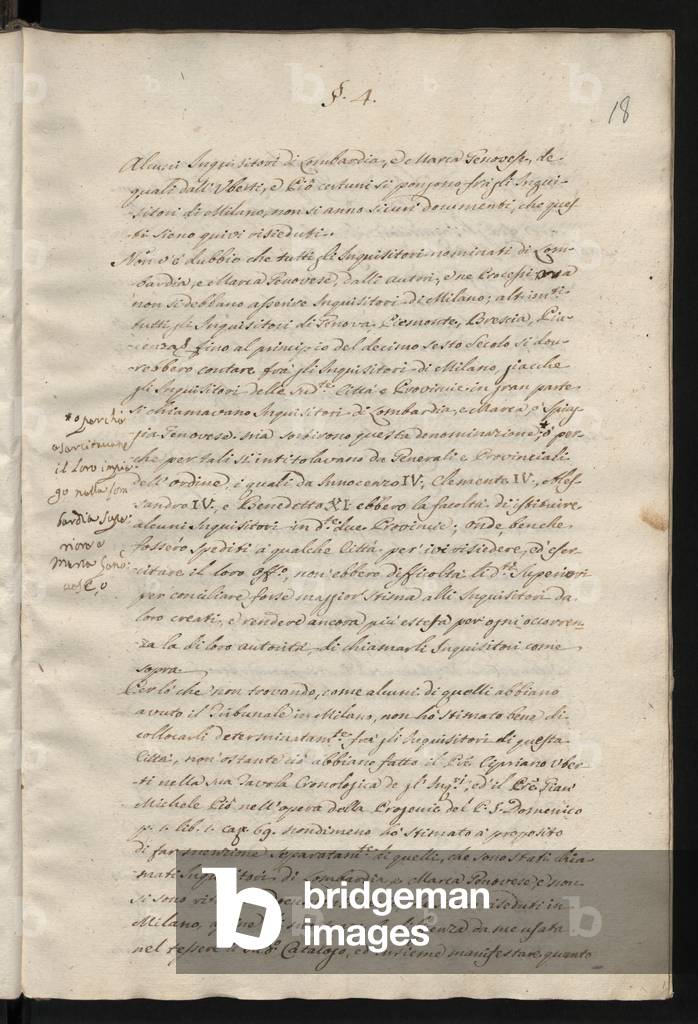 §. 4.
18
Alcuni Inquisitori di Lombardia, e Marca Genovese, de
quali dall'Uberti, e Piò certuni si pongono frà gli Inqui-
sitori di Milano, non si anno sicuri documenti, che ques
ti sieno quivi risieduti.
Non v'è dubbio che tutti gli Inquisitori nominati di Lom-
bardia, e Marca Genovese, dalli autori, e ne Processi
non si debbano asserire Inquisitori di Milano; altrim.ti
tutti gli Inquisitori di Genova, Piemonte, Brescia, Pia-
cenza fino al principio del decimo sesto Secolo si dov-
rebbero contare frà gli Inquisitori di Milano, giacche
gli Inquisitori delle Sud.te Città e Provincie in gran parte
si chiamavano Inquisitori di Lombardia, e Marca, ò Spiag-
gia Genovese. ma sortirono questa denominazione,* ò per-
che per tali si intitolavano da Generali e Provinciali
dell'ordine, i quali da Innocenzo IV, Clemente IV, Ales-
sandro IV, e Benedetto XI ebbero la facoltà di istituire
alcuni Inquisitori in d.e due Provincie; onde, benche
fossero spediti à qualche Città per ivi risiedere, ed eser-
citare il loro Off.o, non ebbero difficoltà li d.ti Superiori
per conciliare forse maggior stima alli Inquisitori da
loro creati, e rendere ancora più estesa per ogni occorren-
za la di loro autorità di chiamarli Inquisitori come
sopra
Perlo che non trovando, come alcuni di quelli abbiano
avuto il Tribunale in Milano, non hò stimato bene di
collocarli determinatam.te frà gli Inquisitori di questa
Città, non ostante ciò abbiano fatto il P.re Cipriano Uber-
ti nella sua Tavola Cronologica de gl' Inq.ri, ed il P.re Gian
Michele Piò nell'opera della Progenie del P. S. Domenico
p. 1. lib. 1. cap. 69. nondimeno hò stimato à proposito
di far menzione separatam.te di quelli, che sono stati chia-
mati Inquisitori di Lombardia e Marca Genovese, e non
si sono risieduti in
Milano, diligenza da me usata
nel tessere il Catalogo, ed insieme manifestare quanto
* o perchè
esercitavano
il loro impie
go nella Lom
bardia Supe
riore e
Marca Geno
vese, o
bridgeman
images